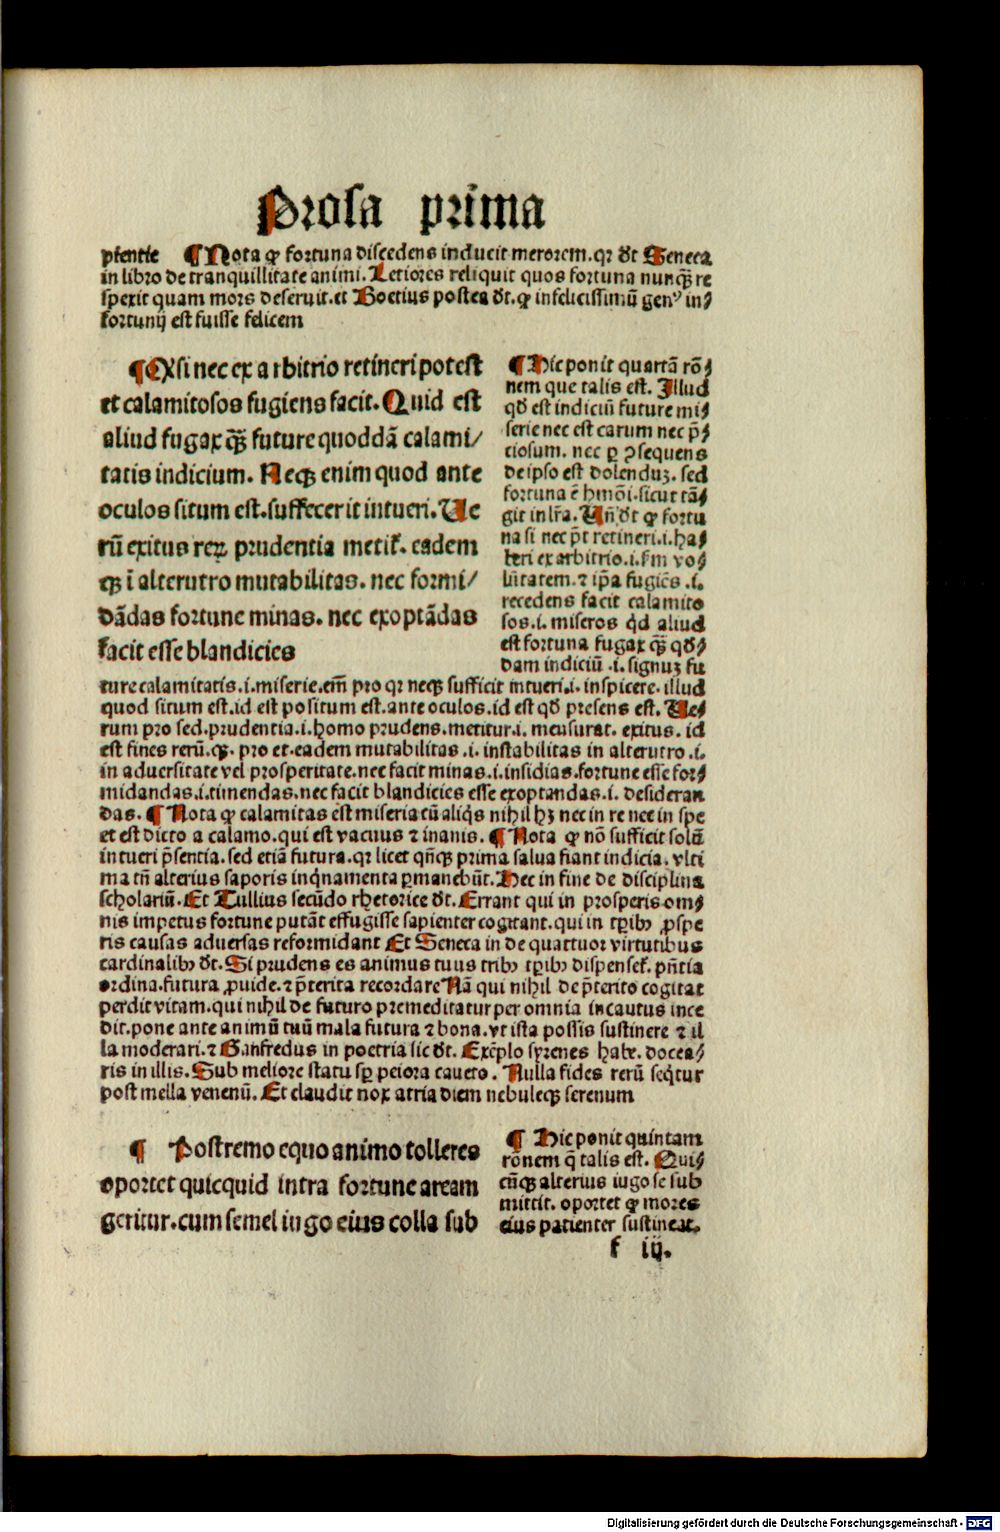 Prosa prima
pientie ¶ Nota ꝙ fortuna discedens inducit merorem. qr dt Seneca
in libro de tranquillitate animi. Letiores reliquit quos fortuna nunq̃ʒ re
spexit quam mors deseruit. et Boetius postea dt. ꝙ infelicissimū genꝰ in⸗
fortunij est fuisse felicem
¶ Qʼ si nec ex arbitrio retineri potest
et calamitosos fugiens facit. Quid est
aliud fugax q̃ʒ future quoddā calami/
tatis indicium. Neqʒ enim quod ante
oculos situm est. suffecerit intueri. Ue
rū exitus reꝝ prudentia metit᷑. eadem
qʒ ī alterutro mutabilitas. nec formi/
dādas fortune minas. nec exoptādas
facit esse blandicies
¶ Hic ponit quartā rō⸗
nem que talis est. Illud
qd̄ est indiciū future mi⸗
serie nec est carum nec p̄⸗
ciosum. nec ꝑ ↄsequens
de ipso est dolenduʒ. sed
fortuna ē hmōi. sicut tā⸗
git in lr̄a. Un̄ dt ꝙ fortu
na si nec p̄t retineri .i. ha⸗
beri ex arbitrio .i. fm vo⸗
lūtatem. ⁊ ip̄a fugiēs .i.
recedens facit calamito
sos .i. miseros qd aliud
est fortuna fugax q̃ʒ qd̄⸗
dam indiciū .i. signuʒ fu
ture calamitatis .i. miserie. em̄ pro qr neqʒ sufficit intueri .i. inspicere. illud
quod situm est. id est positum est. ante oculos. id est qd̄ presens est. Ue⸗
rum pro sed. prudentia .i. homo prudens. metitur .i. mensurat. exitus. id
est fines rerū. qʒ. pro et. eadem mutabilitas .i. instabilitas in alterutro .i.
in aduersitate vel prosperitate. nec facit minas .i. insidias. fortune esse for⸗
midandas .i. timendas. nec facit blandicies esse exoptandas .i. desideran
das. ¶ Nota ꝙ calamitas est miseria cū aliq̄s nihil hʒ nec in re nec in spe
et est dicto a calamo. qui est vacuus ⁊ inanis. ¶ Nota ꝙ nō sufficit solū
intueri p̄sentia. sed etiā futura. qr licet qn̄qʒ prima salua fiant indicia. vlti
ma tn̄ alterius saporis inq̇namenta ꝑmanebūt. Hec in fine de disciplina
scholariū. Et Tullius secūdo rhetorice dt. Errant qui in prosperis om⸗
nis impetus fortune putāt effugisse sapienter cogitant. qui in tꝑibꝫ ꝓspe
ris causas aduersas reformidant Et Seneca in de quattuor virtutibus
cardinalibꝫ dt. Si prudens es animus tuus tribꝫ tꝑibꝫ dispenset᷑. pn̄tia
ordina. futura ꝓuide. ⁊ p̄terita recordare Nā qui nihil de p̄terito cogitat
perdit vitam. qui nihil de futuro premeditatur per omnia incautus ince
dit. pone ante animū tuū mala futura ⁊ bona. vt ista possis sustinere ⁊ il
la moderari. ⁊ Ganfredus in poetria sic dt. Exēplo syrenes habe. docea⸗
ris in illis. Sub meliore statu sꝑ peiora caueto. Nulla fides rerū seq̄tur
post mella venenū. Et claudit nox atria diem nebuleqʒ serenum
¶ Postremo equo animo tolleres
oportet quicquid intra fortune aream
geritur. cum semel iugo eius colla sub
¶ Hic ponit quintam
rōnem q̄ talis est. Qui⸗
cūqʒ alterius iugo se sub
mittit. oportet ꝙ mores
eius patienter sustineat.
f iij.
Digitalisierung gefördert durch die Deutsche Forschungsgemeinschaft - DFG